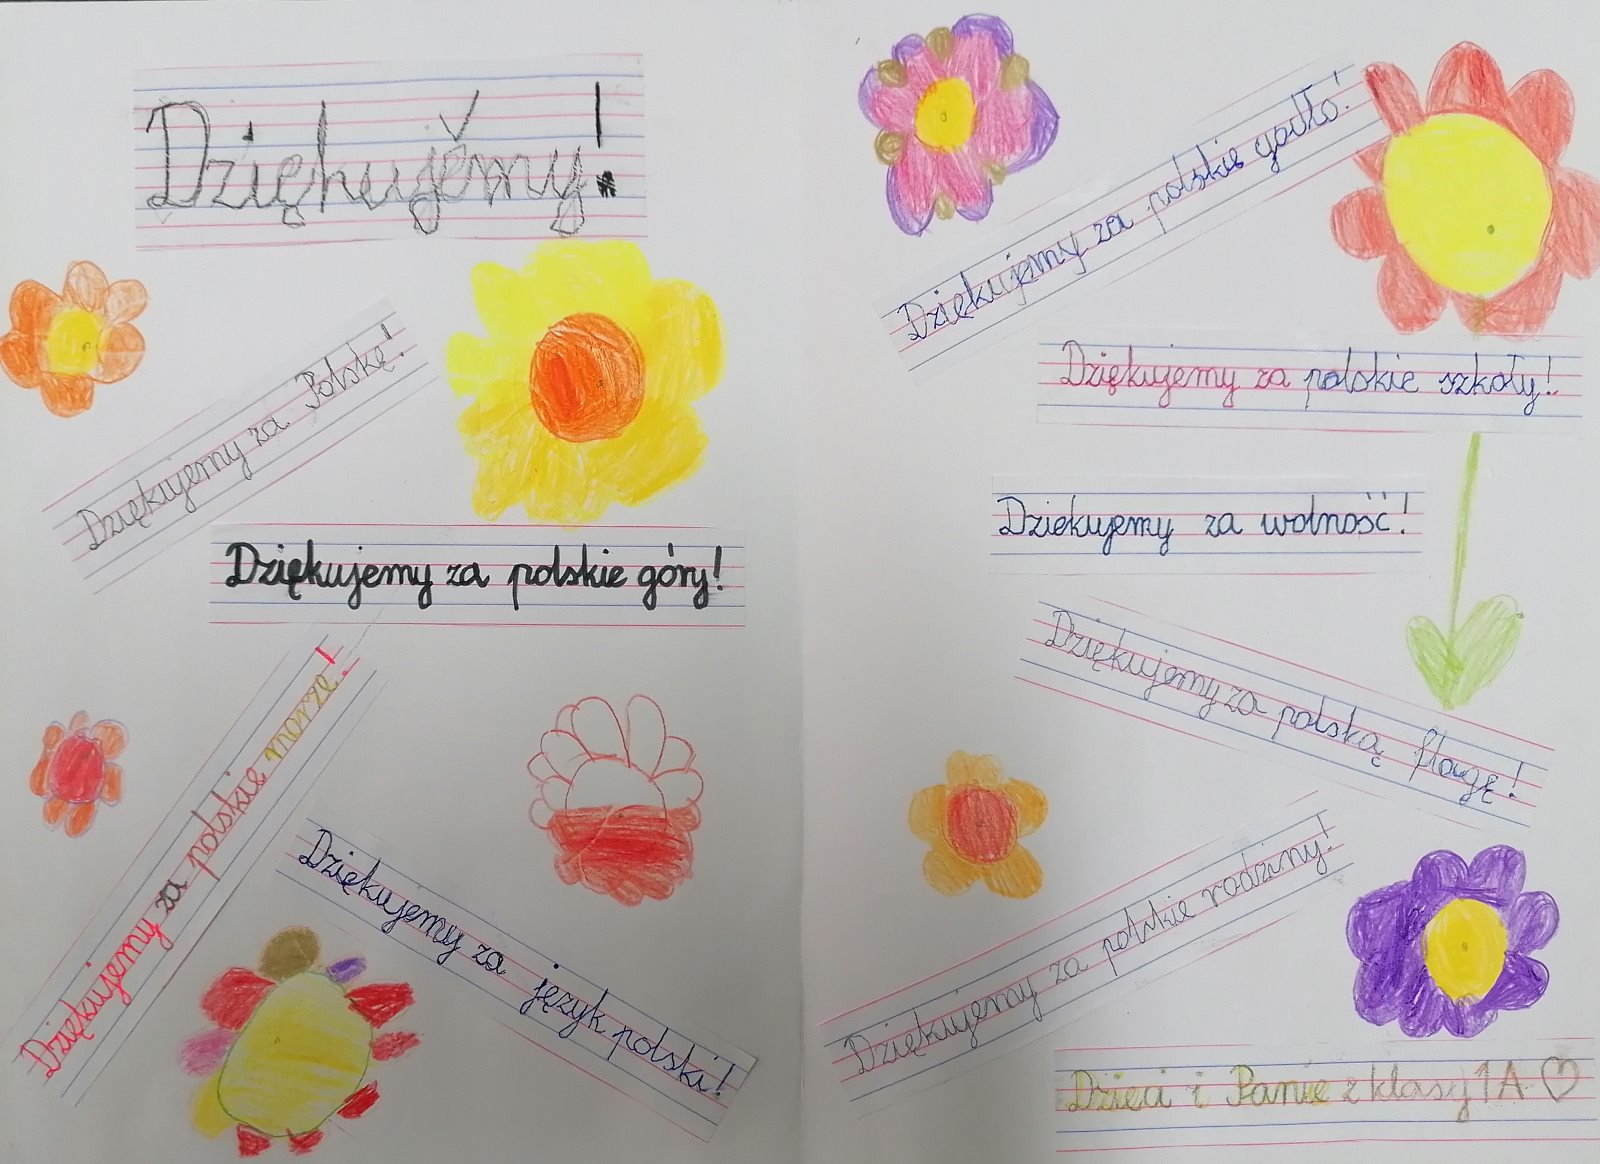 Dziękujemy!
Dziękujemy za Polskę!
Dziękujemy za polskie góry!
Dziękujemy za polskie morze!
Dziękujemy za język polski!
Dziękujemy za polskie godło!
Dziękujemy za polskie szkoły!
Dziekujemy za wolność!
Dziękujemy za polską flagę!
Dziękujemy za polskie rodziny!
Dzieci i Panie z klasy 1A